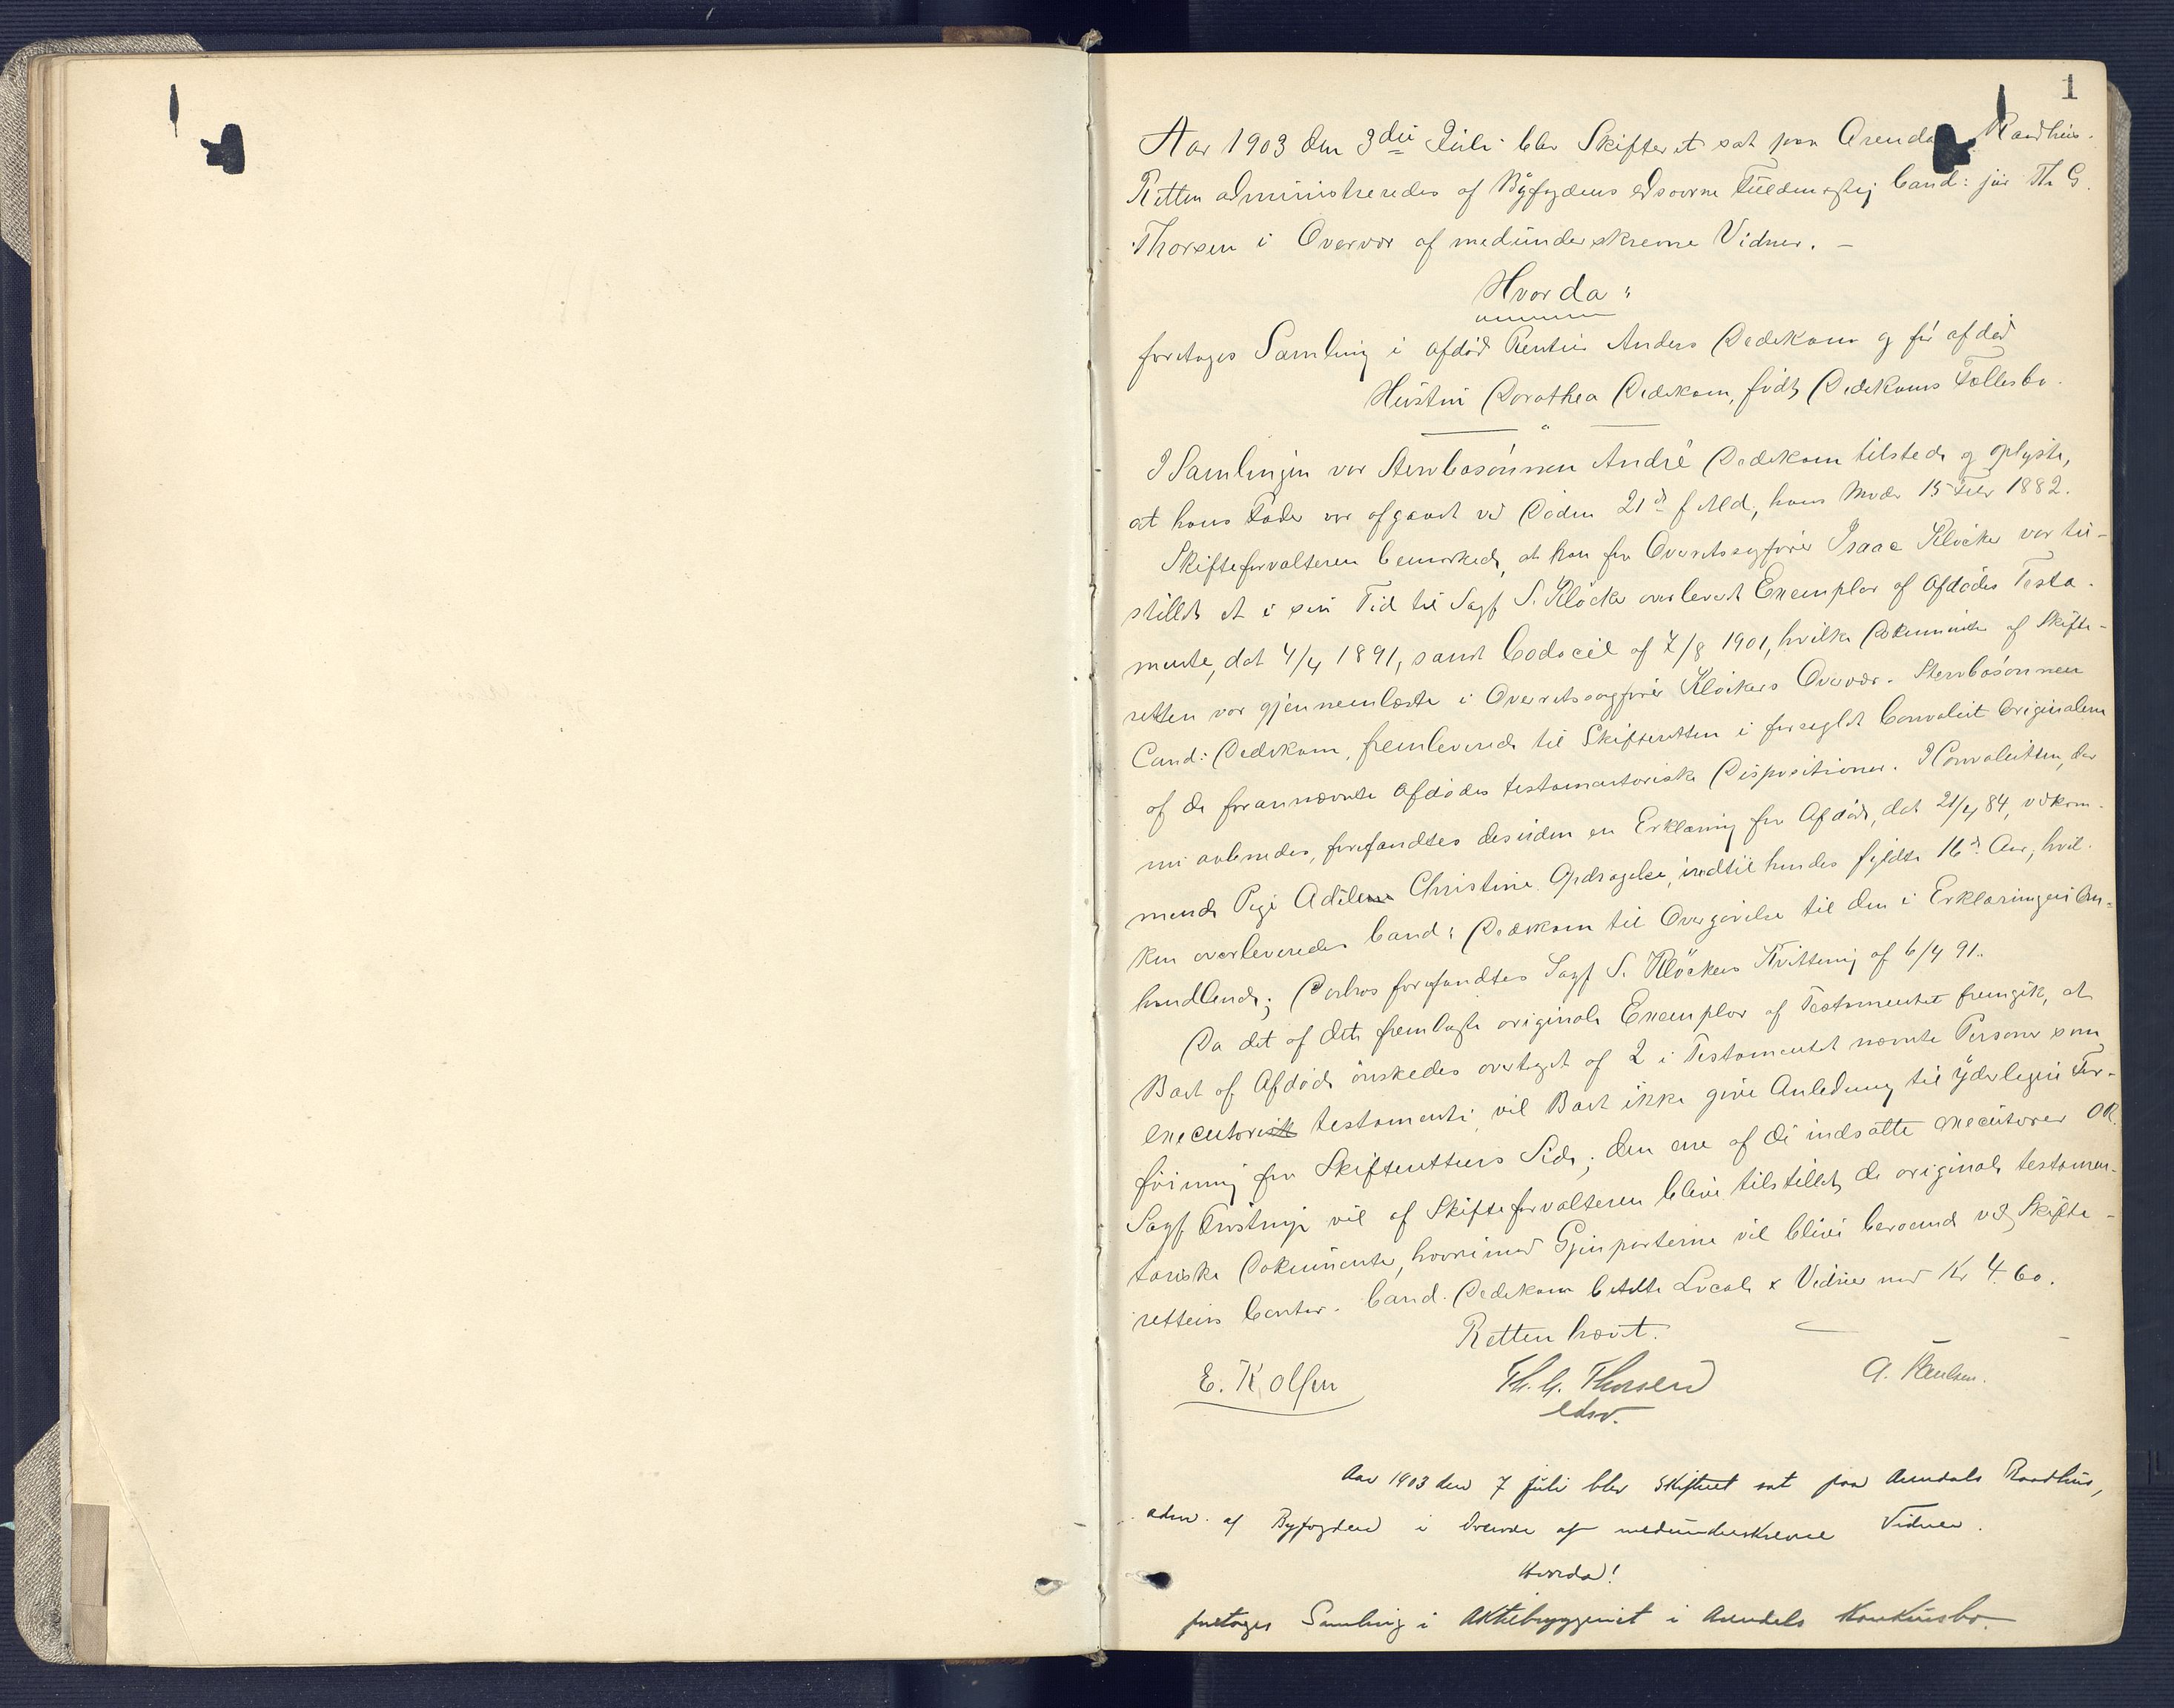 1
Aar 1903 den 3die Juli blev Skifteret sat paa Arendals Raadhus.
Retten administreredes af Byfogdens edsvorne Fuldmægtig Cand: jur Th G.
Thorsen i Overvær af medunderskrevne Vidner. –
Hvorda:
foretoges Samling i afdød Rentier Anders Dedekam og før afdød
Hustru Dorothea Dedekam, født Dedekams Fællesbo.
I Samlingen var Stervbosønnen André Dedekam tilstede og oplyste,
at hans Fader var afgaaet ved Døden 21de f Md, hans Moder 15 Febr 1882.
Skifteforvalteren bemærkede, at han fra Overretssagfører Isaac Kløcker var til-
stillet et i sin Tid til Sagf S. Kløcker overleveret Exemplar af Afdødes Testa-
mente, dat 4/4 1891, samt Codocil af 7/8 1901, hvilke Dokumenter af Skifte-
retten var gjennemlæste i Overretssagfører Kløckers Overvær. Stervbosønnen
Cand: Dedekam, fremleverede til Skifteretten i forseglet Convolut Originalerne
af de forannævnte Afdødes testamentariske Dispositioner. I Convolutten, der
nu aabnedes, forefandtes desuden en Erklæring fra Afdøde, dat 21/4 84, vedkom-
mende Pige Adéle Christine Opdragelse, indtil hendes fyldte 16de Aar, hvil-
ken overleveredes Cand: Dedekam til Overgivelse til den i Erklæringen Om-
handlende; Derhos forefandtes Sagf S. Kløckers Kvittering af 6/4 91.
Da det af dette fremlagte originale Exemplar af Testamentet fremgik, at
Boet af Afdøde ønskedes overtaget af 2 i Testamentet nævnte Personer som
executores testamenti, vil Boet ikke give Anledning til yderligere For-
føining fra Skifterettens Side; den ene af de indsatte executorer OR.
Sagf vil af Skifteforvalteren blive tilstillet de originale testamen-
tariske Dokumenter, hvorimod Gjenparterne vil blive beroende ved Skifte-
rettens Contor. Cand. Dedekam betalte Local & Vidner med Kr 4.60.
Retten hævet.
E. K. Olsen Th. G. Thorsen A. Paulsen.
edsv.
Aar 1903 den 7 juli blev Skifteret sat paa Arendals Raadhus,
adm. af Byfogden i Overvær af medunderskrevne Vidner.
Hvorda!
foretoges Samling i Aktiebryggeriet i Arendals Konkursbo.